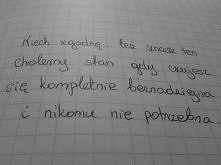 Niech zgodnę... też znasz ten
cholerny stan gdy czujesz
się kompletnie beznadziejna
i nikomu nie potrzebna.